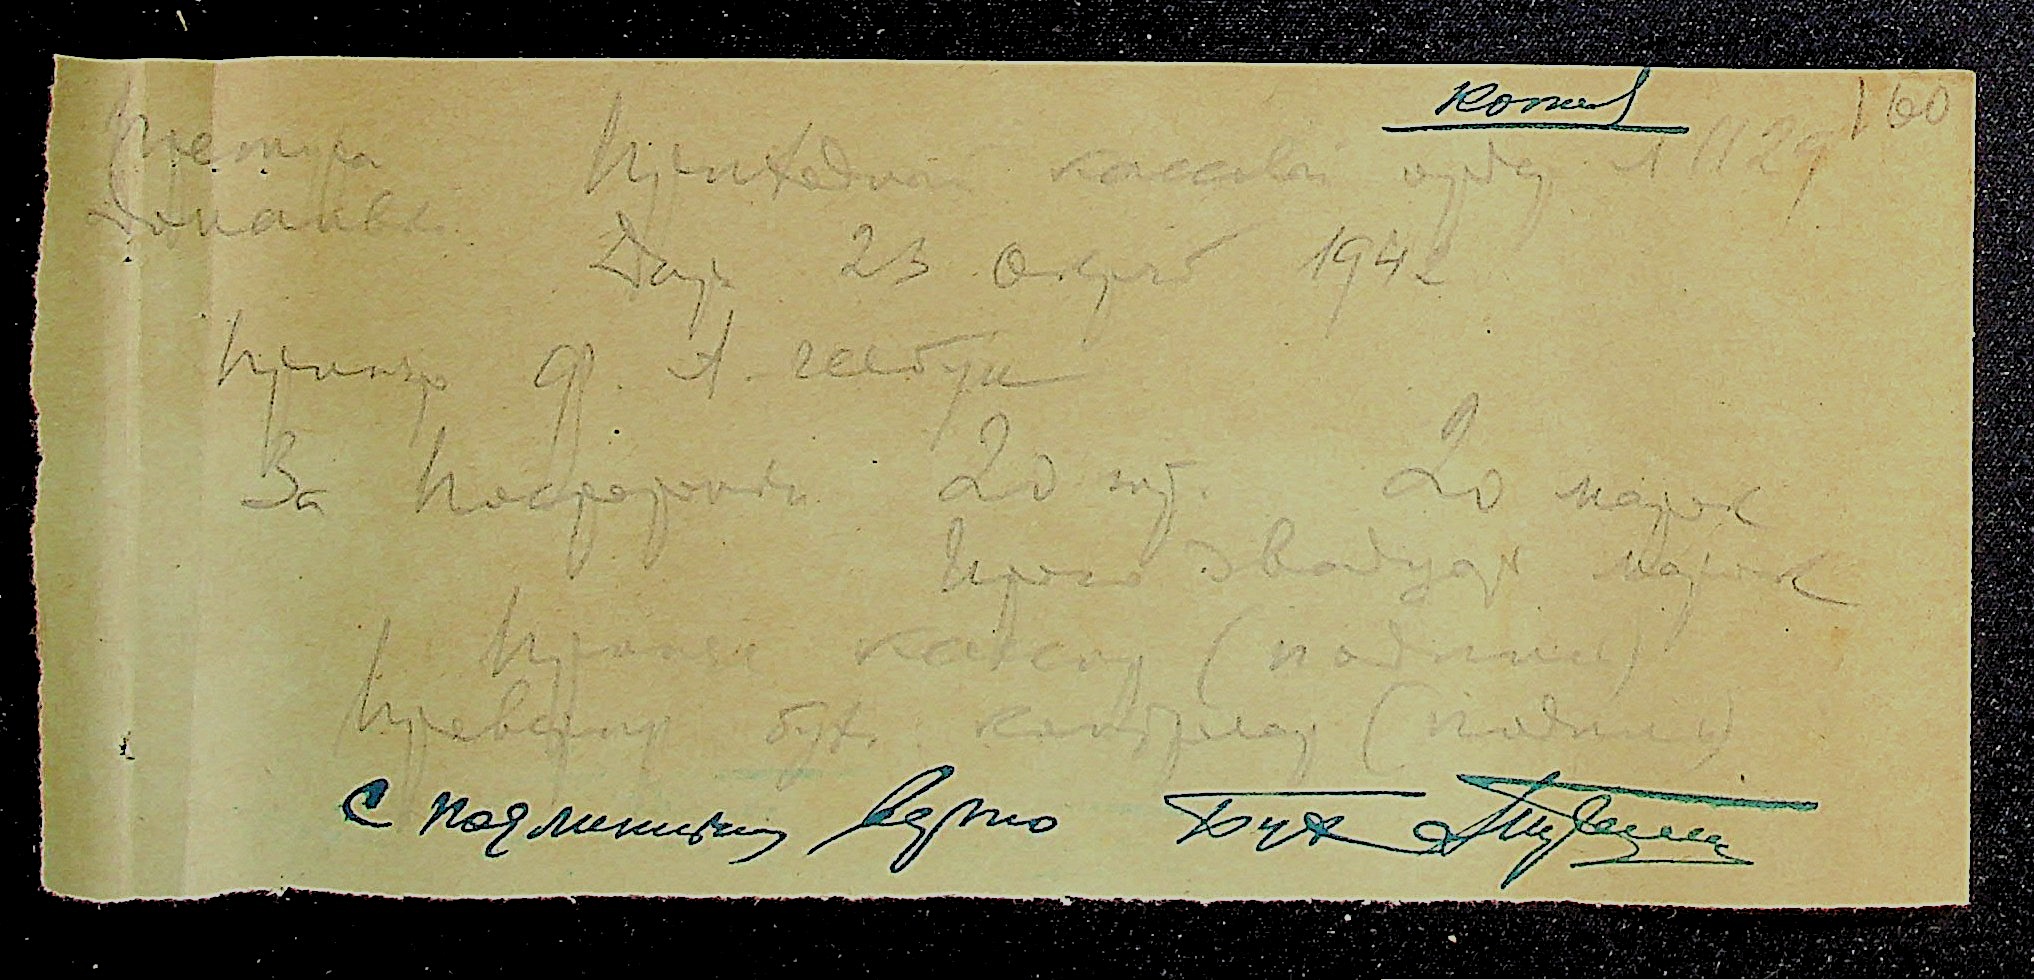 копия
160
Претура Приходной кассовый ордер № 1129
Доманевка
Дата 23 октября 1942
Принято
За 20 шт. 20 марок
Прого двадцать марок
Принял кассир (подпись)
Проверил бух. контролер (подпись)
С подлинным верно Бух